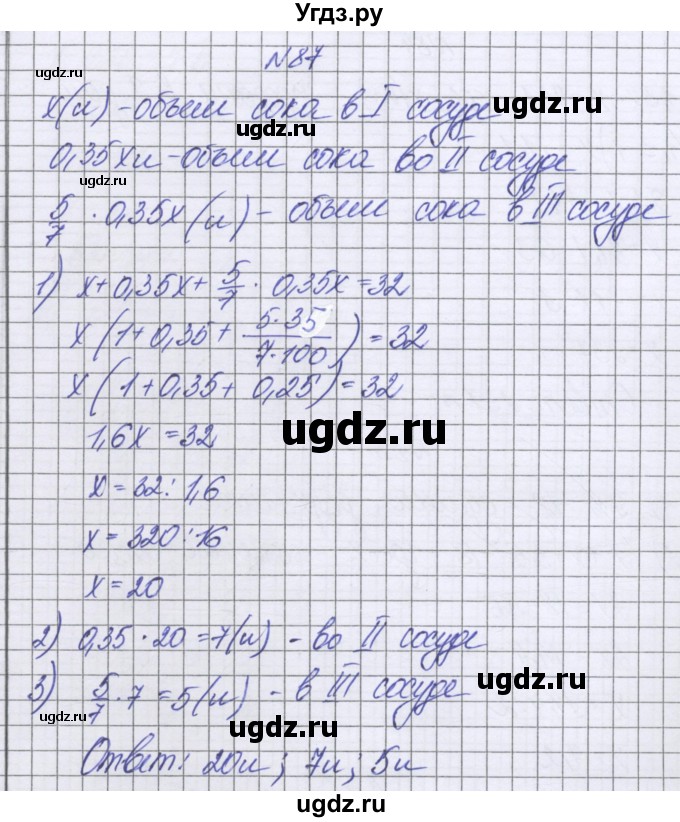 Угдз.ру
N87
ugdz.ru
x(л) - объем сока в I сосуде
ugdz.ru
ugdz.ru
0,35x л - объем сока во II сосуде
ugdz.ru
5/7 · 0,35x (л) - объем сока в III сосуде
ugdz.ru
1) x + 0,35x + 5/7 · 0,35x = 32
x (1 + 0,35 + 5·35/7·100) = 32
x (1 + 0,35 + 0,25) = 32
1,6x = 32
ugdz.ru
x = 32 : 1,6
x = 320 : 16
x = 20
2) 0,35 · 20 = 7 (л) - во II сосуде
ugdz.ru
3) 5/7 · 7 = 5 (л) - в III сосуде
ugdz.ru
ugdz.ru
Ответ: 20л; 7л; 5л
ugdz.ru